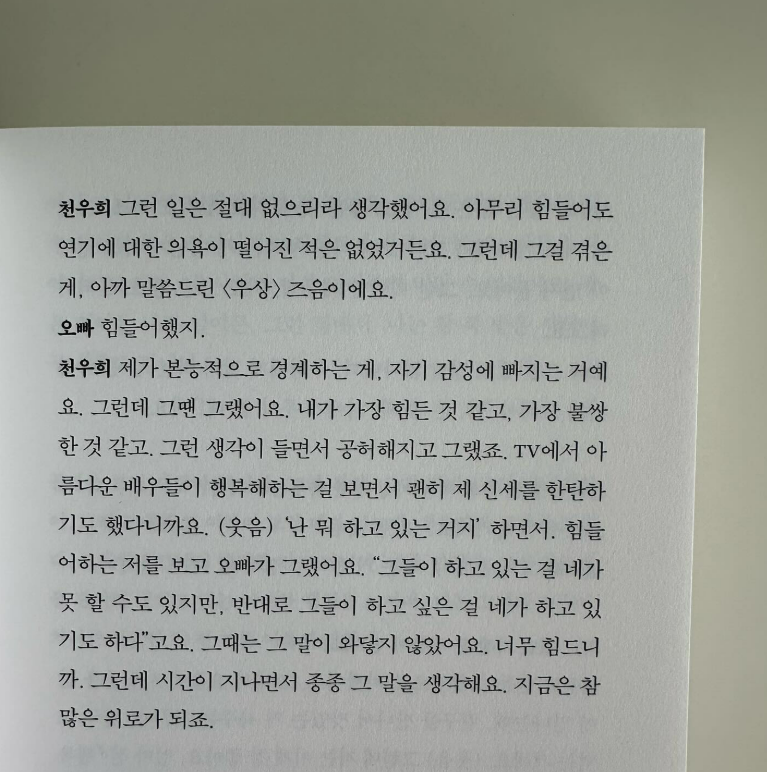 천우희 그런 일은 절대 없으리라 생각했어요. 아무리 힘들어도
연기에 대한 의욕이 떨어진 적은 없었거든요. 그런데 그걸 겪은
게, 아까 말씀드린 〈우상〉 즈음이에요.
오빠 힘들어했지.
천우희 제가 본능적으로 경계하는 게, 자기 감성에 빠지는 거예
요. 그런데 그땐 그랬어요. 내가 가장 힘든 것 같고, 가장 불쌍
한 것 같고. 그런 생각이 들면서 공허해지고 그랬죠. TV에서 아
름다운 배우들이 행복해하는 걸 보면서 괜히 제 신세를 한탄하
기도 했다니까요. (웃음) ‘난 뭐 하고 있는 거지’ 하면서. 힘들
어하는 저를 보고 오빠가 그랬어요. “그들이 하고 있는 걸 네가
못 할 수도 있지만, 반대로 그들이 하고 싶은 걸 네가 하고 있
기도 하다”고요. 그때는 그 말이 와닿지 않았어요. 너무 힘드니
까. 그런데 시간이 지나면서 종종 그 말을 생각해요. 지금은 참
많은 위로가 되죠.